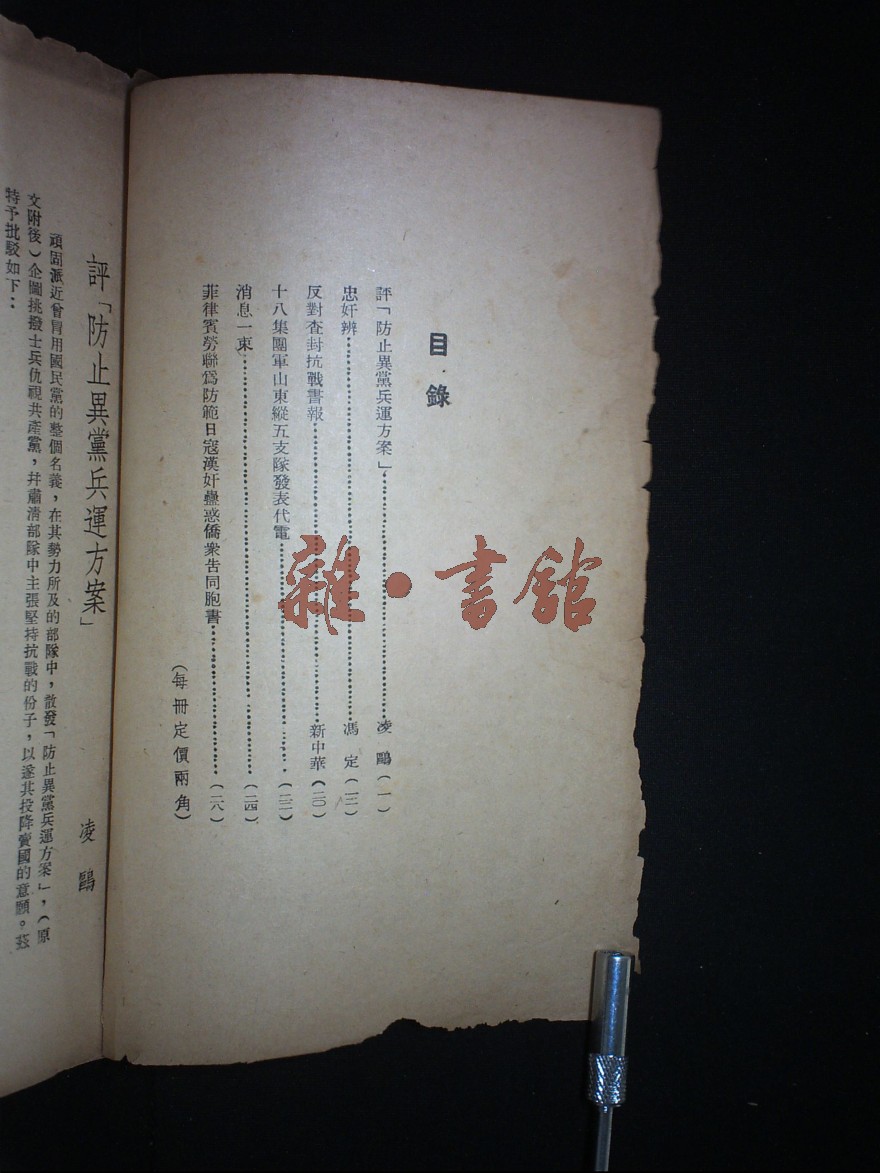 目錄
評「防止異黨兵運方案」……凌鷗(一)
忠奸辨……馮定(一二)
反對査封抗戰書報……新中華(二〇)
十八集團軍山東縱五支隊發表代電……(二二)
消息一束……(二四)
菲律賓勞聯爲防範日寇漢奸蠱惑僑衆告同胞書……(二八)
(每冊定價兩角)
評「防止異黨兵運方案」
凌鷗
頑固派近曾冒用國民黨的整個名義,在其勢力所及的部隊中,散發「防止異黨兵運方案」,(原
文附後)企圖挑撥士兵仇視共產黨,幷肅清部隊中主張堅持抗戰的份子,以遂其投降賣國的意願。茲
特予批駁如下:
雜·書舘